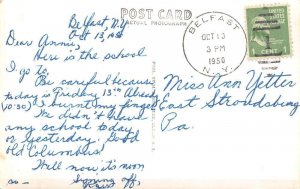 Belfast, N.Y.
Oct 13, 1950
Dear Annie,
Here is the school
I go to.
Be careful because
today is Friday 13th. Already
(10:30) I burnt my finger.
We didn't have
any school today
or yesterday. Good
old Columbus!
Well now it's noon
Signing off,
POST CARD
ACTUAL PHOTOGRAPH
BELFAST
OCT 13
3 PM
1950
N.Y.
1 CENT 1
Miss Ann Yetter
East Stroudsburg
Pa.